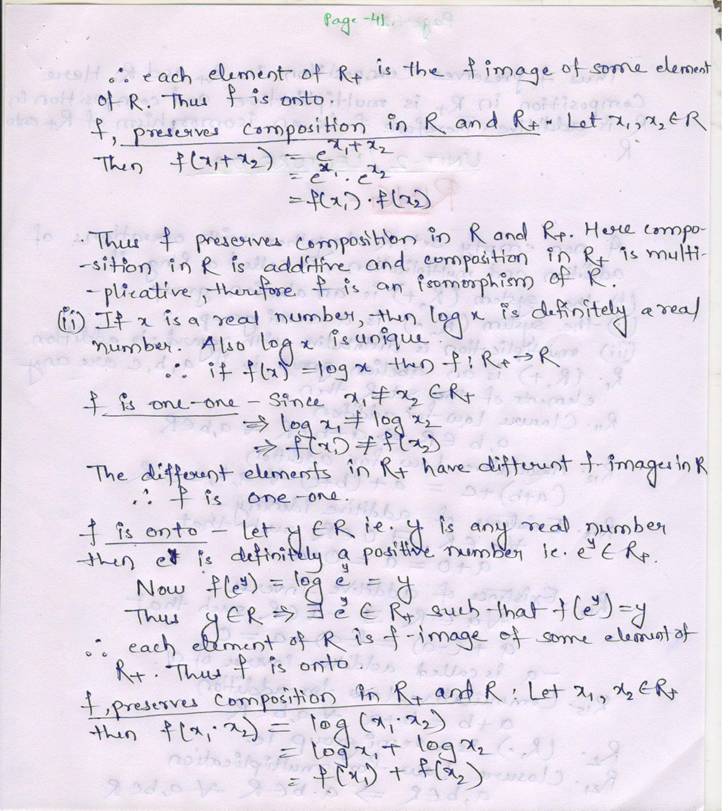 Page -41.
∴ each element of R₊ is the f image of some element
of R. Thus f is onto.
f, preserves composition in R and R₊. Let x₁, x₂ ∈ R
Then f(x₁+x₂) = e^(x₁+x₂)
= e^x₁ . e^x₂
= f(x₁) . f(x₂)
Thus f preserves composition in R and R₊. Here compo-
-sition in R is additive and composition in R₊ is multi-
-plicative, therefore f is an isomorphism of R.
(ii) If x is a real number, then log x is definitely a real
number. Also log x is unique.
∴ if f(x) = log x then f: R₊ → R
f is one-one - Since x₁ ≠ x₂ ∈ R₊
⇒ log x₁ ≠ log x₂
⇒ f(x₁) ≠ f(x₂)
The different elements in R₊ have different f-images in R
∴ f is one-one.
f is onto - Let y ∈ R i.e. y is any real number
then e^y is definitely a positive number ie. e^y ∈ R₊.
Now f(e^y) = log e^y = y
Thus y ∈ R ⇒ ∃ e^y ∈ R₊ such that f(e^y) = y
∴ each element of R is f-image of some element of
R₊. Thus f is onto.
f, preserves composition in R₊ and R : Let x₁, x₂ ∈ R₊
then f(x₁.x₂) = log (x₁.x₂)
= log x₁ + log x₂
= f(x₁) + f(x₂)